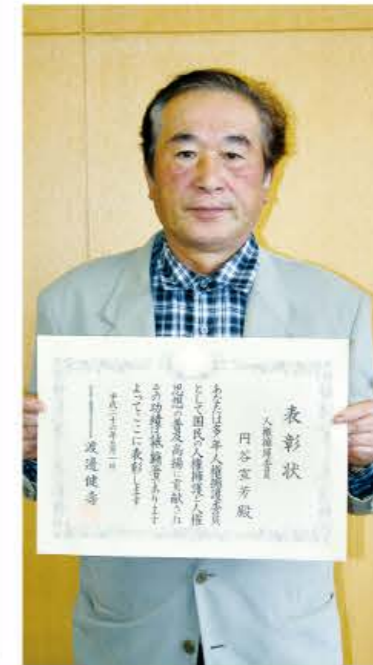 表彰状
人権擁護委員
円谷宣芳殿
あなたは多年人権擁護委員
として国民の人権擁護と人権
思想の普及高揚に貢献され
その功績は誠に顕著であります
よってここに表彰します
平成二十六年
渡邉健寿